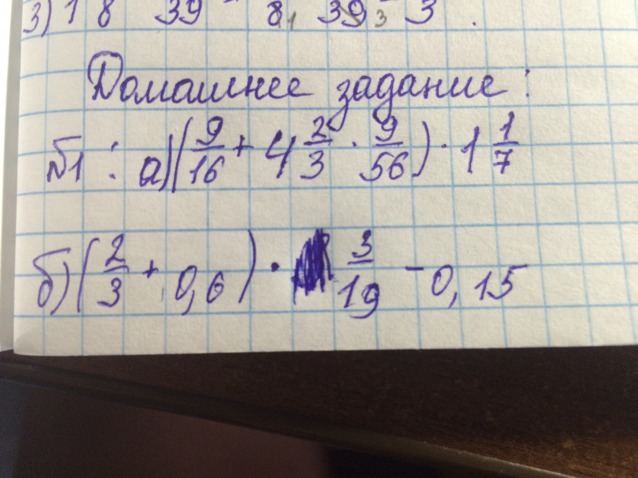 3) 1 8 39 8 1 39 3 3 .
Домашнее задание:
№1: а) (9/16 + 4 2/3 · 9/56) · 1 1/7
б) (2/3 + 0,6) · 3/19 - 0,15